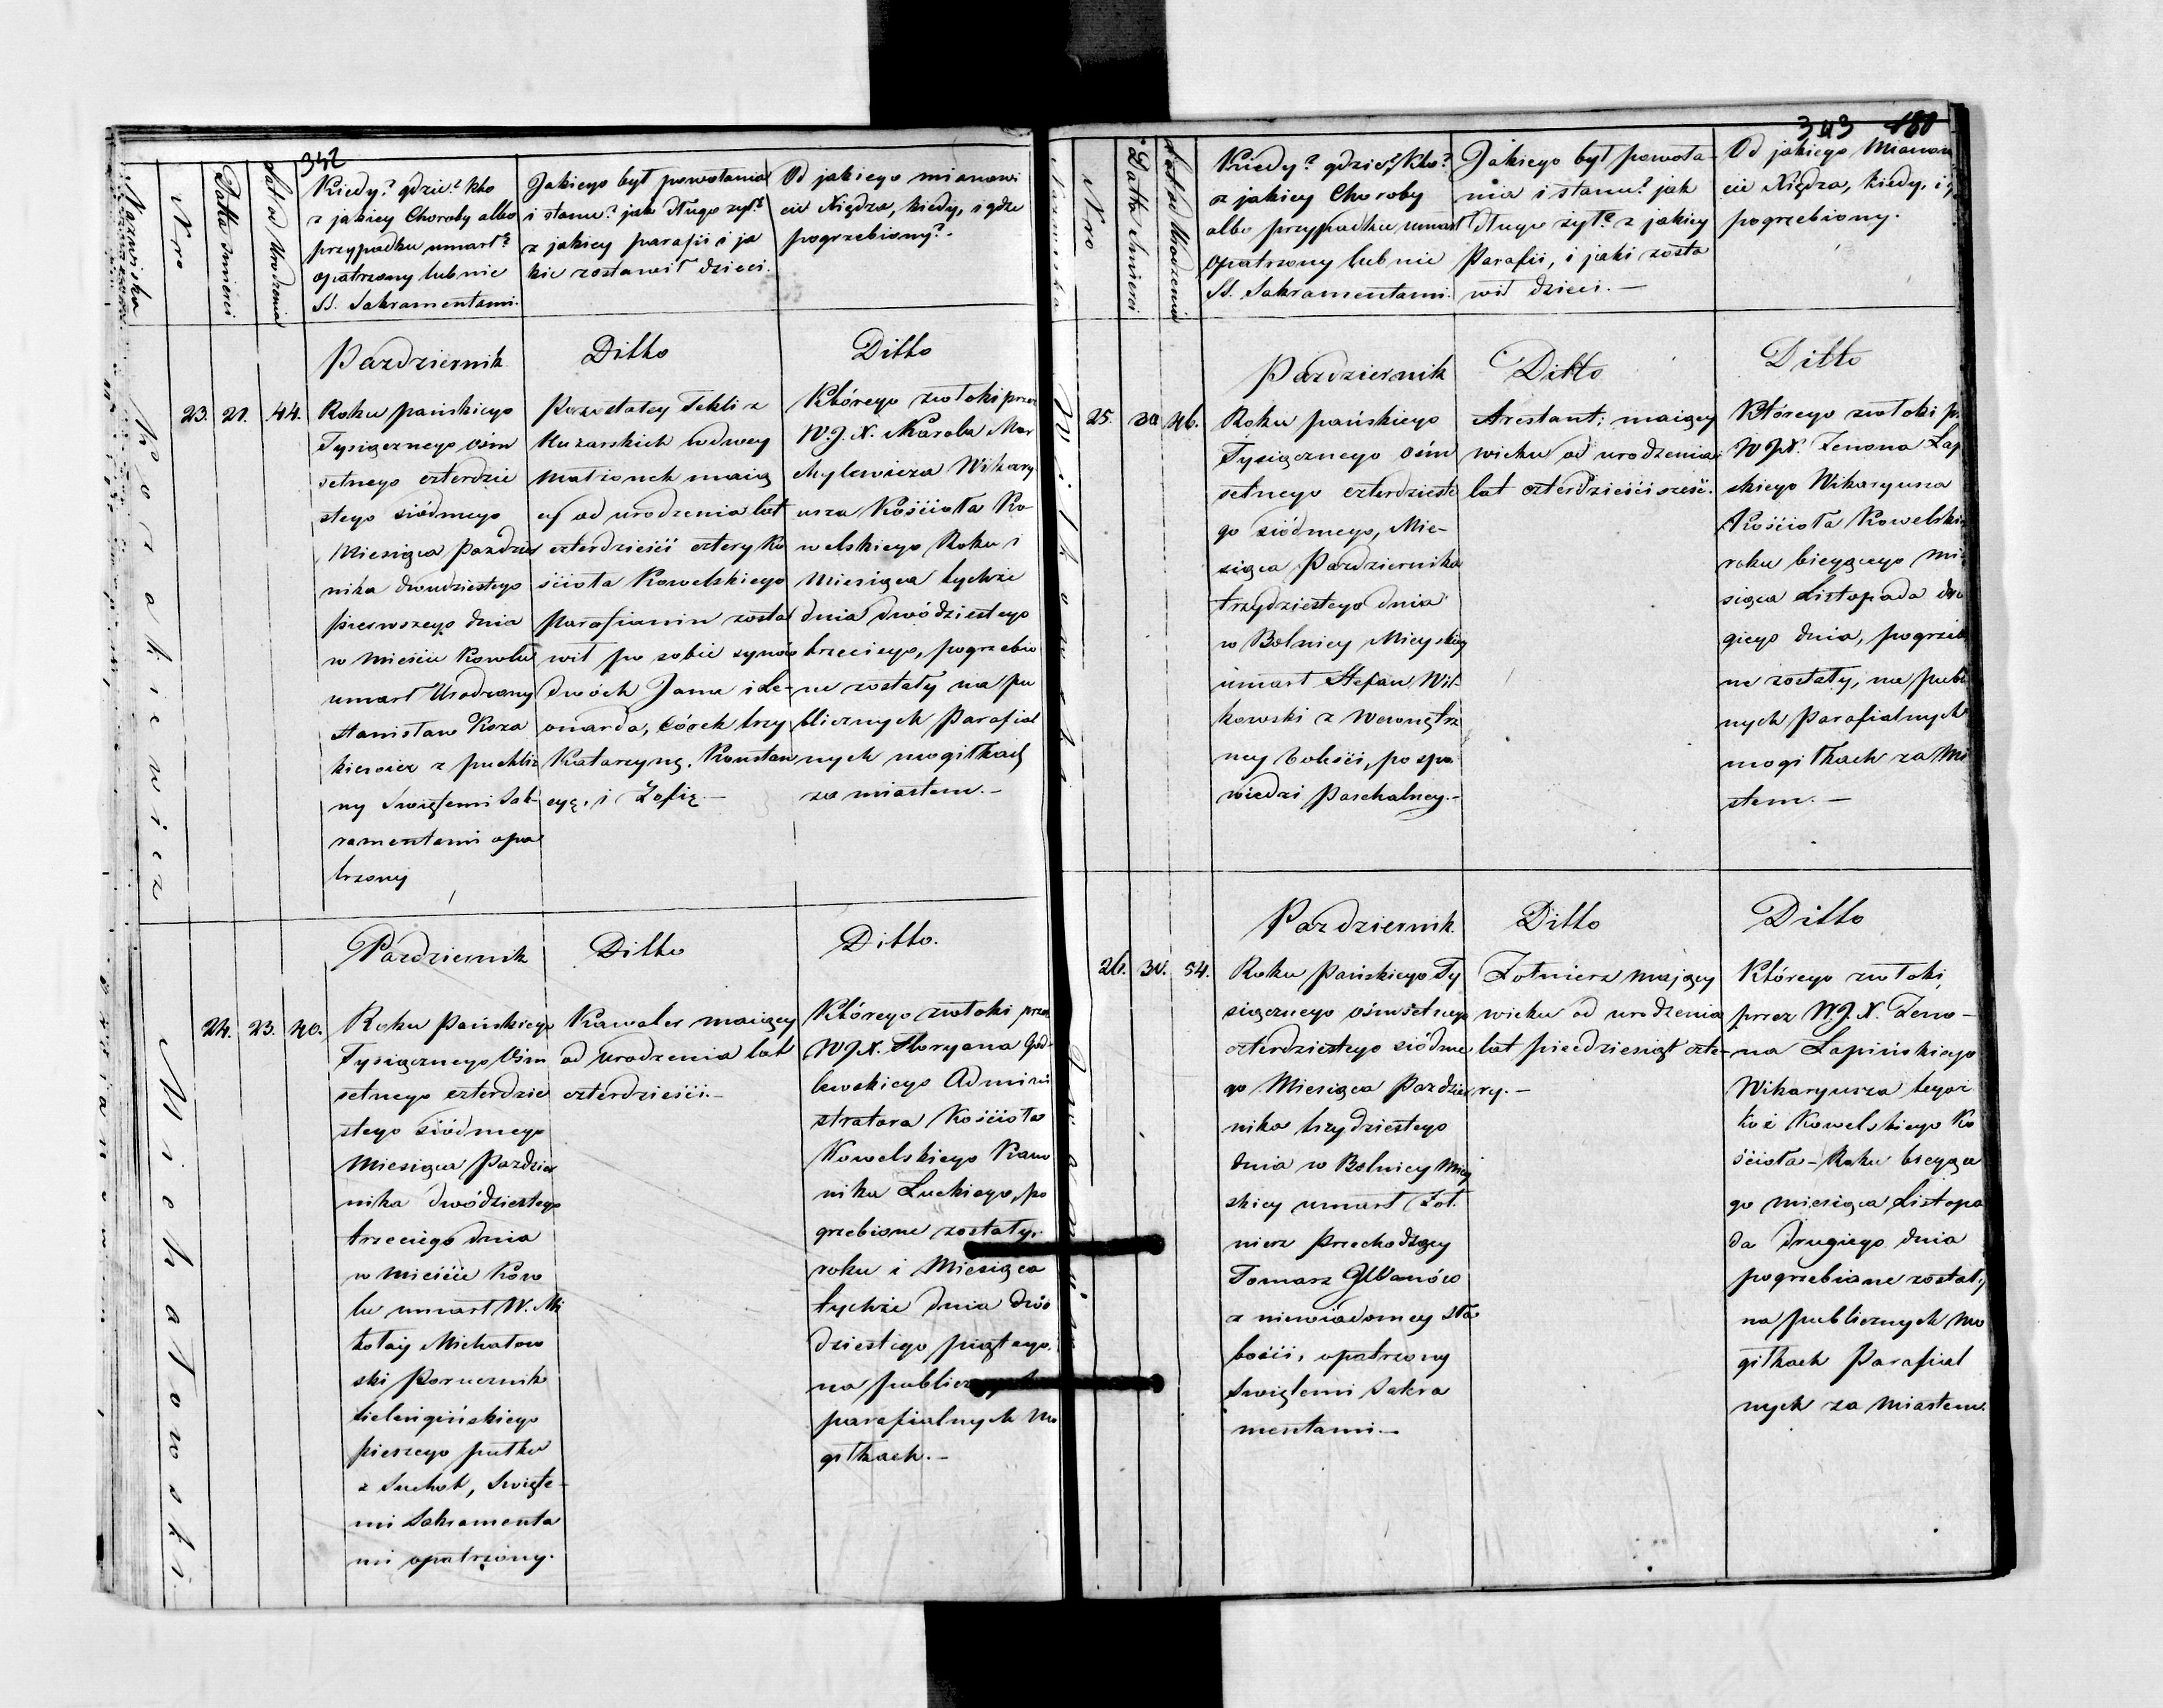 342
Nazwiska
Nro
Datta śmierci
Lat od Urodzenia
Kiedy? gdzie? kto
z jakiey Choroby albo
przypadku umarł?
opatrzony lub nie
SS. Sakramentami.
Jakiego był powołania
i stanu? jak długo żył?
z jakiey parafii i ja
kie zostawił dzieci.
Od jakiego mianowi
cie Xiędza, kiedy, i gdzie
pogrzebiony?.
Kozakiewicz
23.
21.
44.
Pazdziernik
Roku pańskiego
Tysiącznego ośm
setnego czterdzie
stego siódmego
Miesiąca Pazdzier
nika dwudziestego
pierwszego dnia
w mieście Kowlu
umarł Urodzony
Stanisław Koza
kiewicz z puchli
ny Swiętemi Sak
ramentami opa
trzony
Ditto
Pozostałey Tekli z
Huzarskich wdwey
małżonek maią
cy od urodzenia lat
czterdzieści cztery Ko
ścioła Kowelskiego
parafianin zosta
wił po sobie synów
dwóch Jana i Le-
onarda, Córek trzy
Katarzynę, Konstan
cyę, i Zofię.-
Ditto
Którego zwłoki przez
W.J.X. Karola Mar
chylewicza Wikary
usza Kościoła Ko-
welskiego Roku i
Miesiąca tychże
dnia dwódziestego
trzeciego, pogrzebio
ne zostały na pu
blicznych Parafial
nych mogiłkach
za miastem.-
Michałowski
24.
23.
40.
Pazdziernik
Roku Pańskiego
Tysiącznego Ośm
setnego czterdzie
stego siódmego
Miesiąca Pazdzier
nika dwódziestego
trzeciego dnia
w mieście Kow
lu umarł W. Mi
kołay Michałow
ski Porucznik
pieszego pułku
z Suchot, Swięte-
mi Sakramenta
mi opatrzony.
Ditto
Kawaler maiący
od urodzenia lat
czterdzieści.-
Ditto.
Którego zwłoki przez
WJX. Floryana God-
lewskiego Admini
stratora Kościoła
Kowelskiego Kano
nika Łuckiego, po
grzebione zostały,
roku i Miesiąca
tychże dnia dwó
dziestego piątego,
na publicznych
parafialnych mo
giłkach.-
343 180
Nazwiska
Nro
Datta śmierci
Lat od Urodzenia
Kiedy? gdzie? kto?
z jakiey Choroby
albo przypadku umarł
opatrzony lub nie
SS. Sakramentami.
Jakiego był powoła-
nia i stanu? jak
długo żył? z jakiey
Parafii, i jaki zosta
wił dzieci.-
Od jakiego Mianow
cie Xiędza, kiedy, i g
pogrzebiony.
Witkowski
25.
30
46.
Pazdziernik
Roku pańskiego
Tysiącznego ośm
setnego czterdzieste
go siódmego, Mie-
siąca Pazdziernika
trzydziestego dnia
w Bolnicy Mieyskiey
umarł Stefan Wit-
kowski z wewnętrz
ney boleści, po spo
wiedzi Paschalney.-
Ditto
Arestant; maiący
wieku od urodzenia
lat czterdzieści sześć.
Ditto
Którego zwłoki p.
WJX. Zenona Łap
skiego Wikaryusza
Kościoła Kowelskie
roku bieżącego mi
siąca Listopada dru
giego dnia, pogrzeb
ne zostały, na publ
nych Parafialnych
mogiłkach za Mi
stem.-
26.
30.
54.
Pazdziernik.
Roku Pańskiego Ty
siącznego ośmsetnego
czterdziestego siódme
go Miesiąca Pazdzier
nika trzydziestego
dnia w Bolnicy Miey
skiey umarł Żoł.
nierz Przechodzący
Tomasz JWanów
z niewiadomey sła
bości, opatrzony
Swiętemi Sakra
mentami-
Ditto
Żołnierz mający
wieku od urodzenia
lat piećdziesiąt czte-
ry.-
Ditto
Którego zwłoki,
przez W.J.X. Zeno-
na Łapińskiego
Wikaryusza tegoż
koż Kowelskiego Ko
ścioła-Roku bieżące
go miesiąca Listopa
da Drugiego dnia
pogrzebiane zostały
na publicznych mo
giłkach Parafial
nych za Miastem.